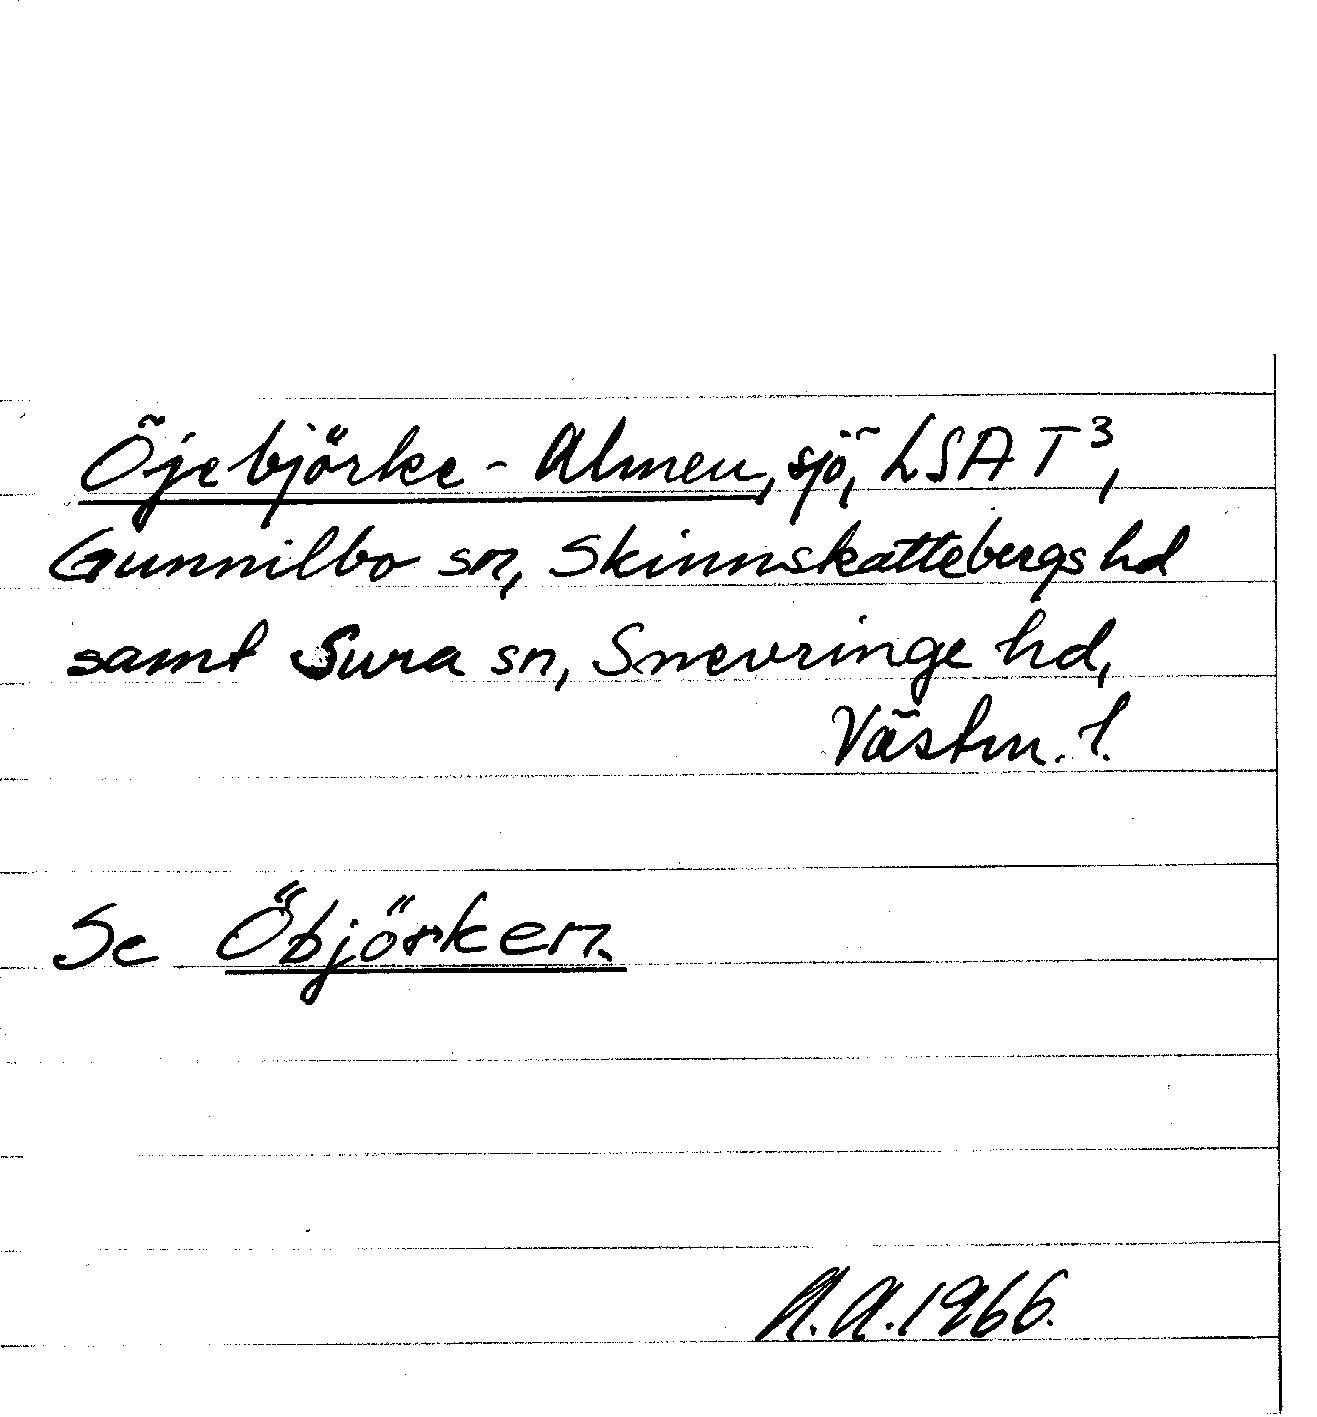 Öjebjörke-Almen, sjö, LSA T³,
Gunnilbo sn, Skinnskattebergs hd
samt Sura sn, Snevringe hd,
Västm. l.
Se Öbjörken.
A.A. 1966.